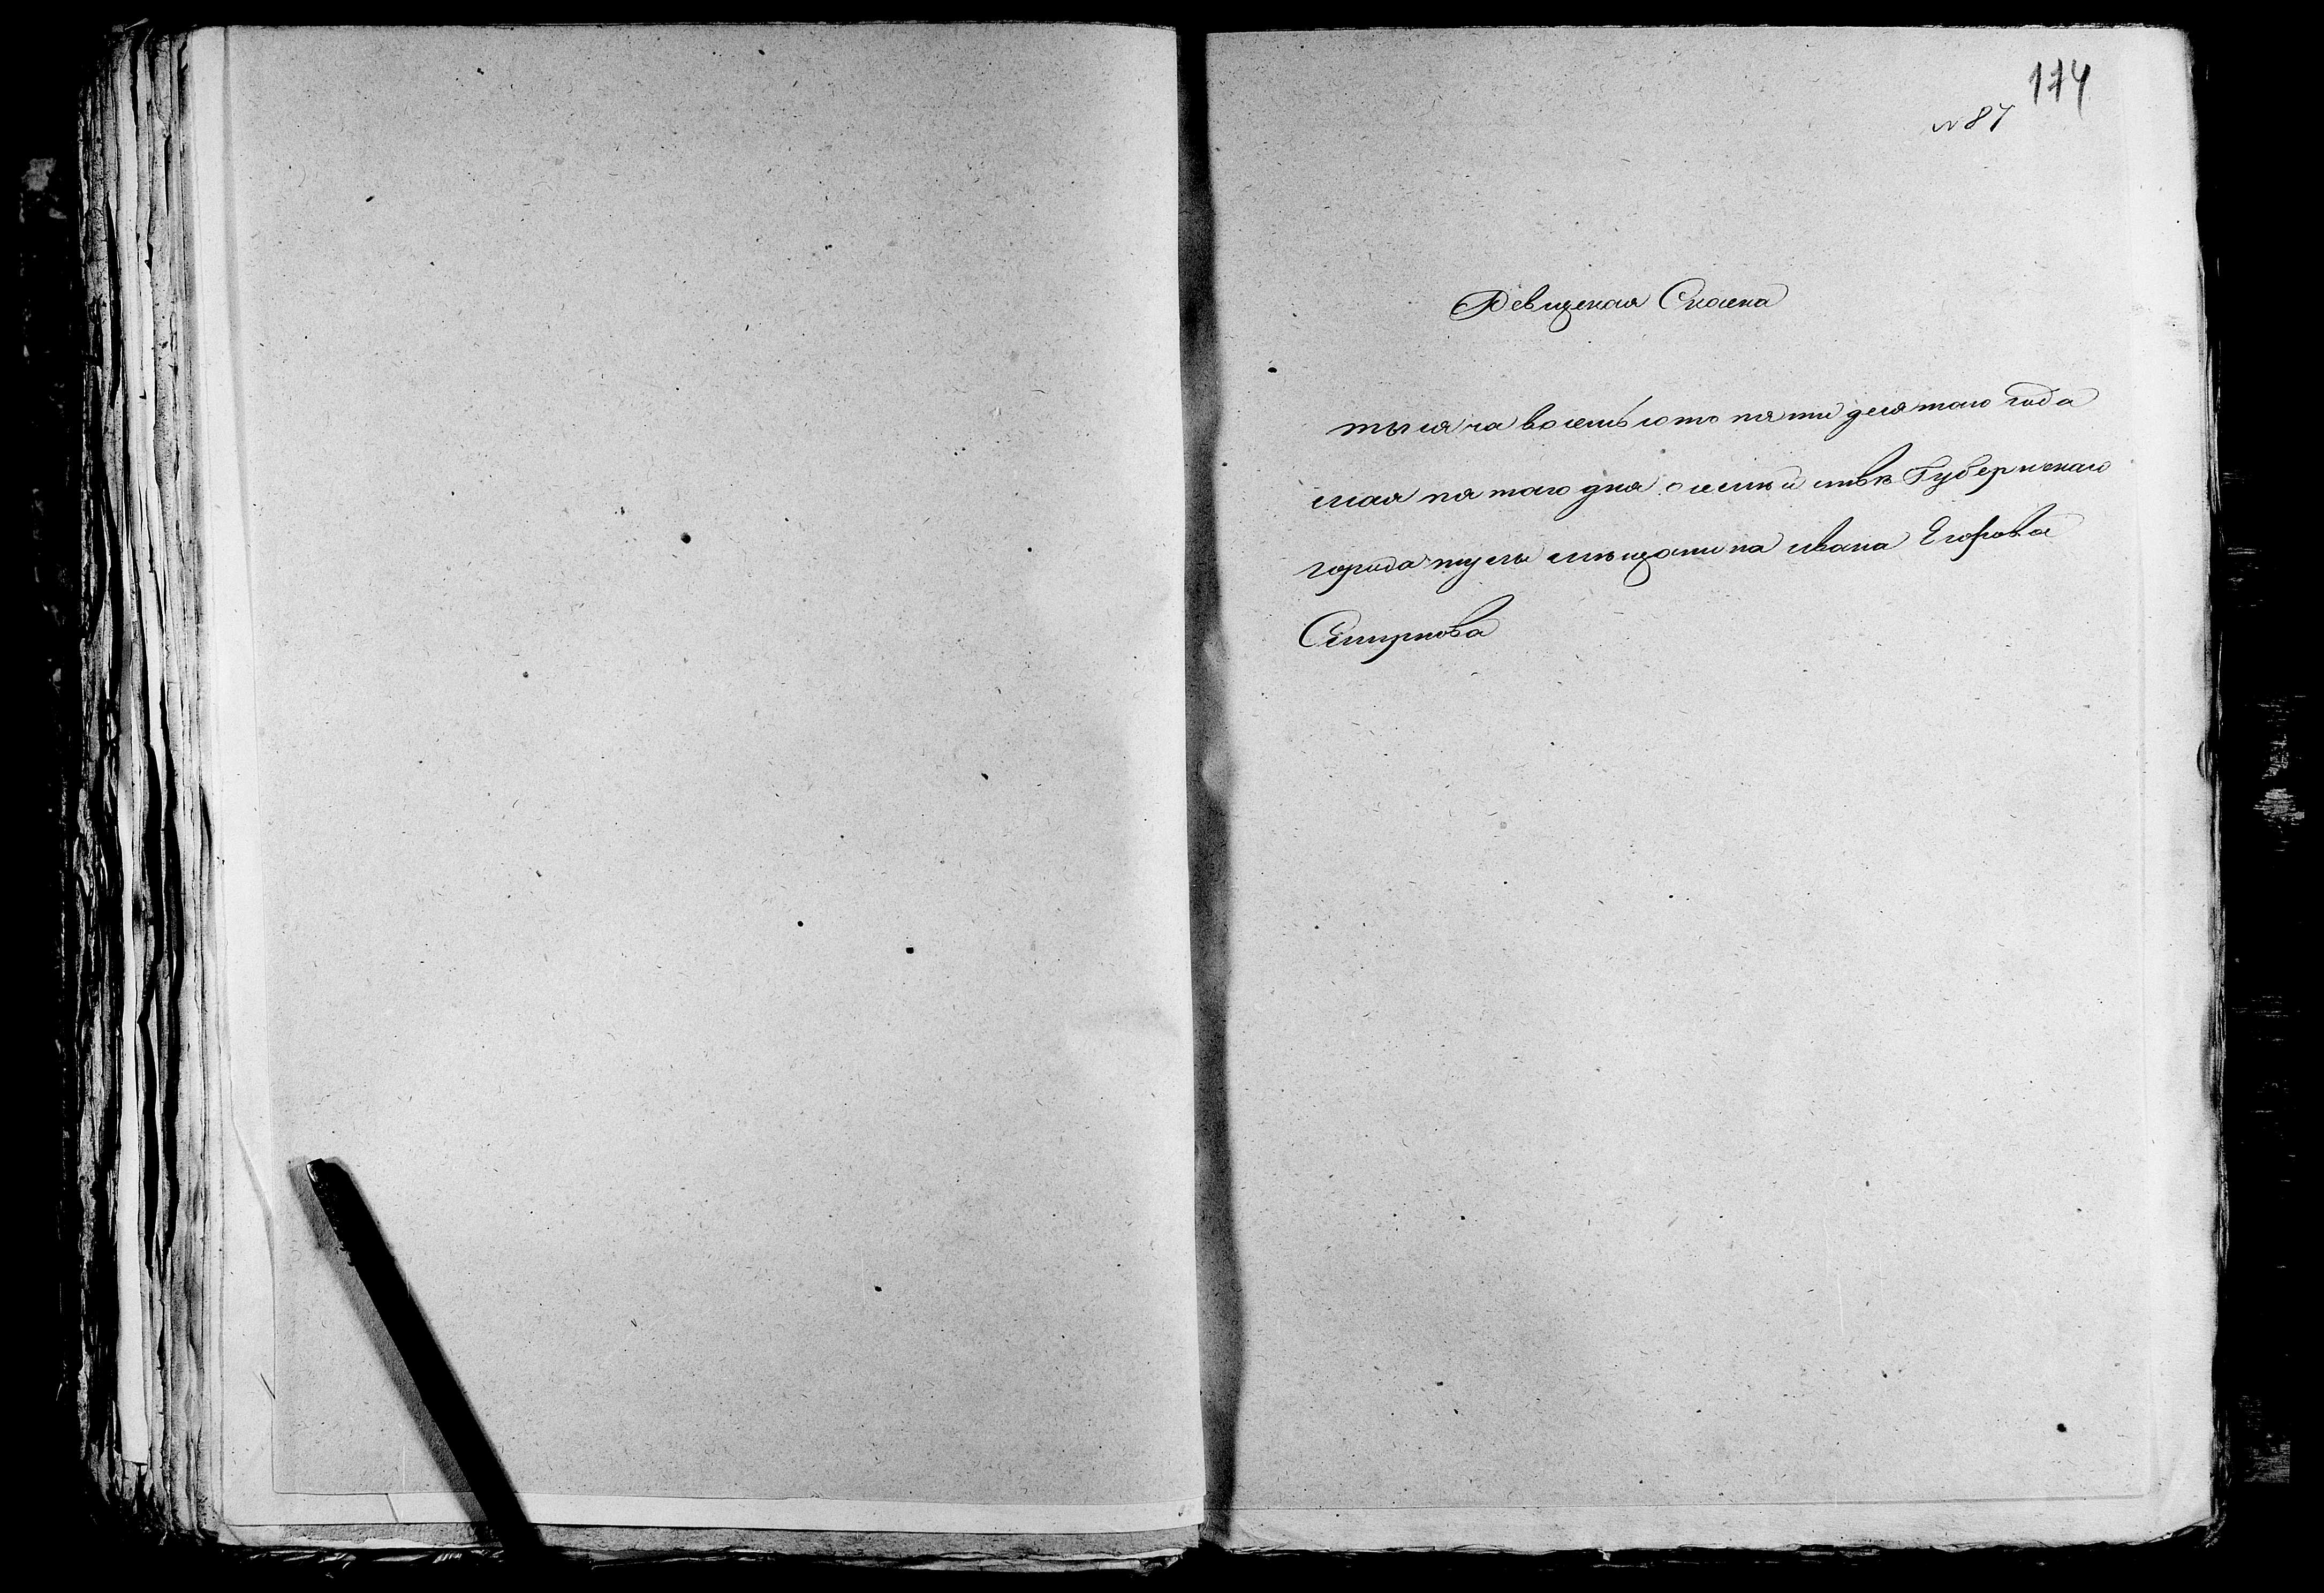 174
№ 87
Ревизская Сказка
тысяча восемьсото пяти десятаго года
мая пятаго дня о семействѣ Губернскаго
города тулы мѣщанина ивана Егорова
Смирнова